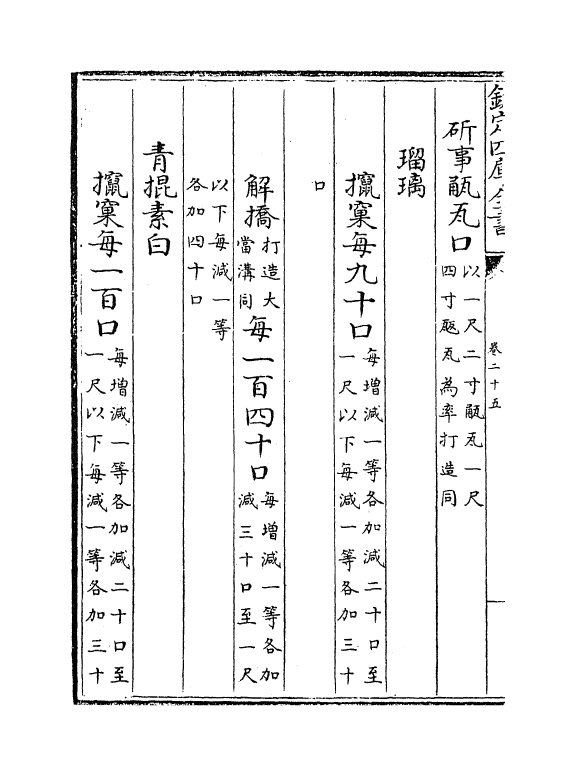 欽定四庫全書
卷二十五
斫事㼧瓦口以一尺二寸㼧瓦一尺
四寸瓪瓦為率打造同
瑠璃
攛窠每九十口每增減一等各加減二十口至
一尺以下每減一等各加三十
口
解撟打造大
當溝同每一百四十口每增減一等各加
減三十口至一尺
以下每減一等
各加四十口
青掍素白
攛窠每一百口每增減一等各加減二十口至
一尺以下每減一等各加三十